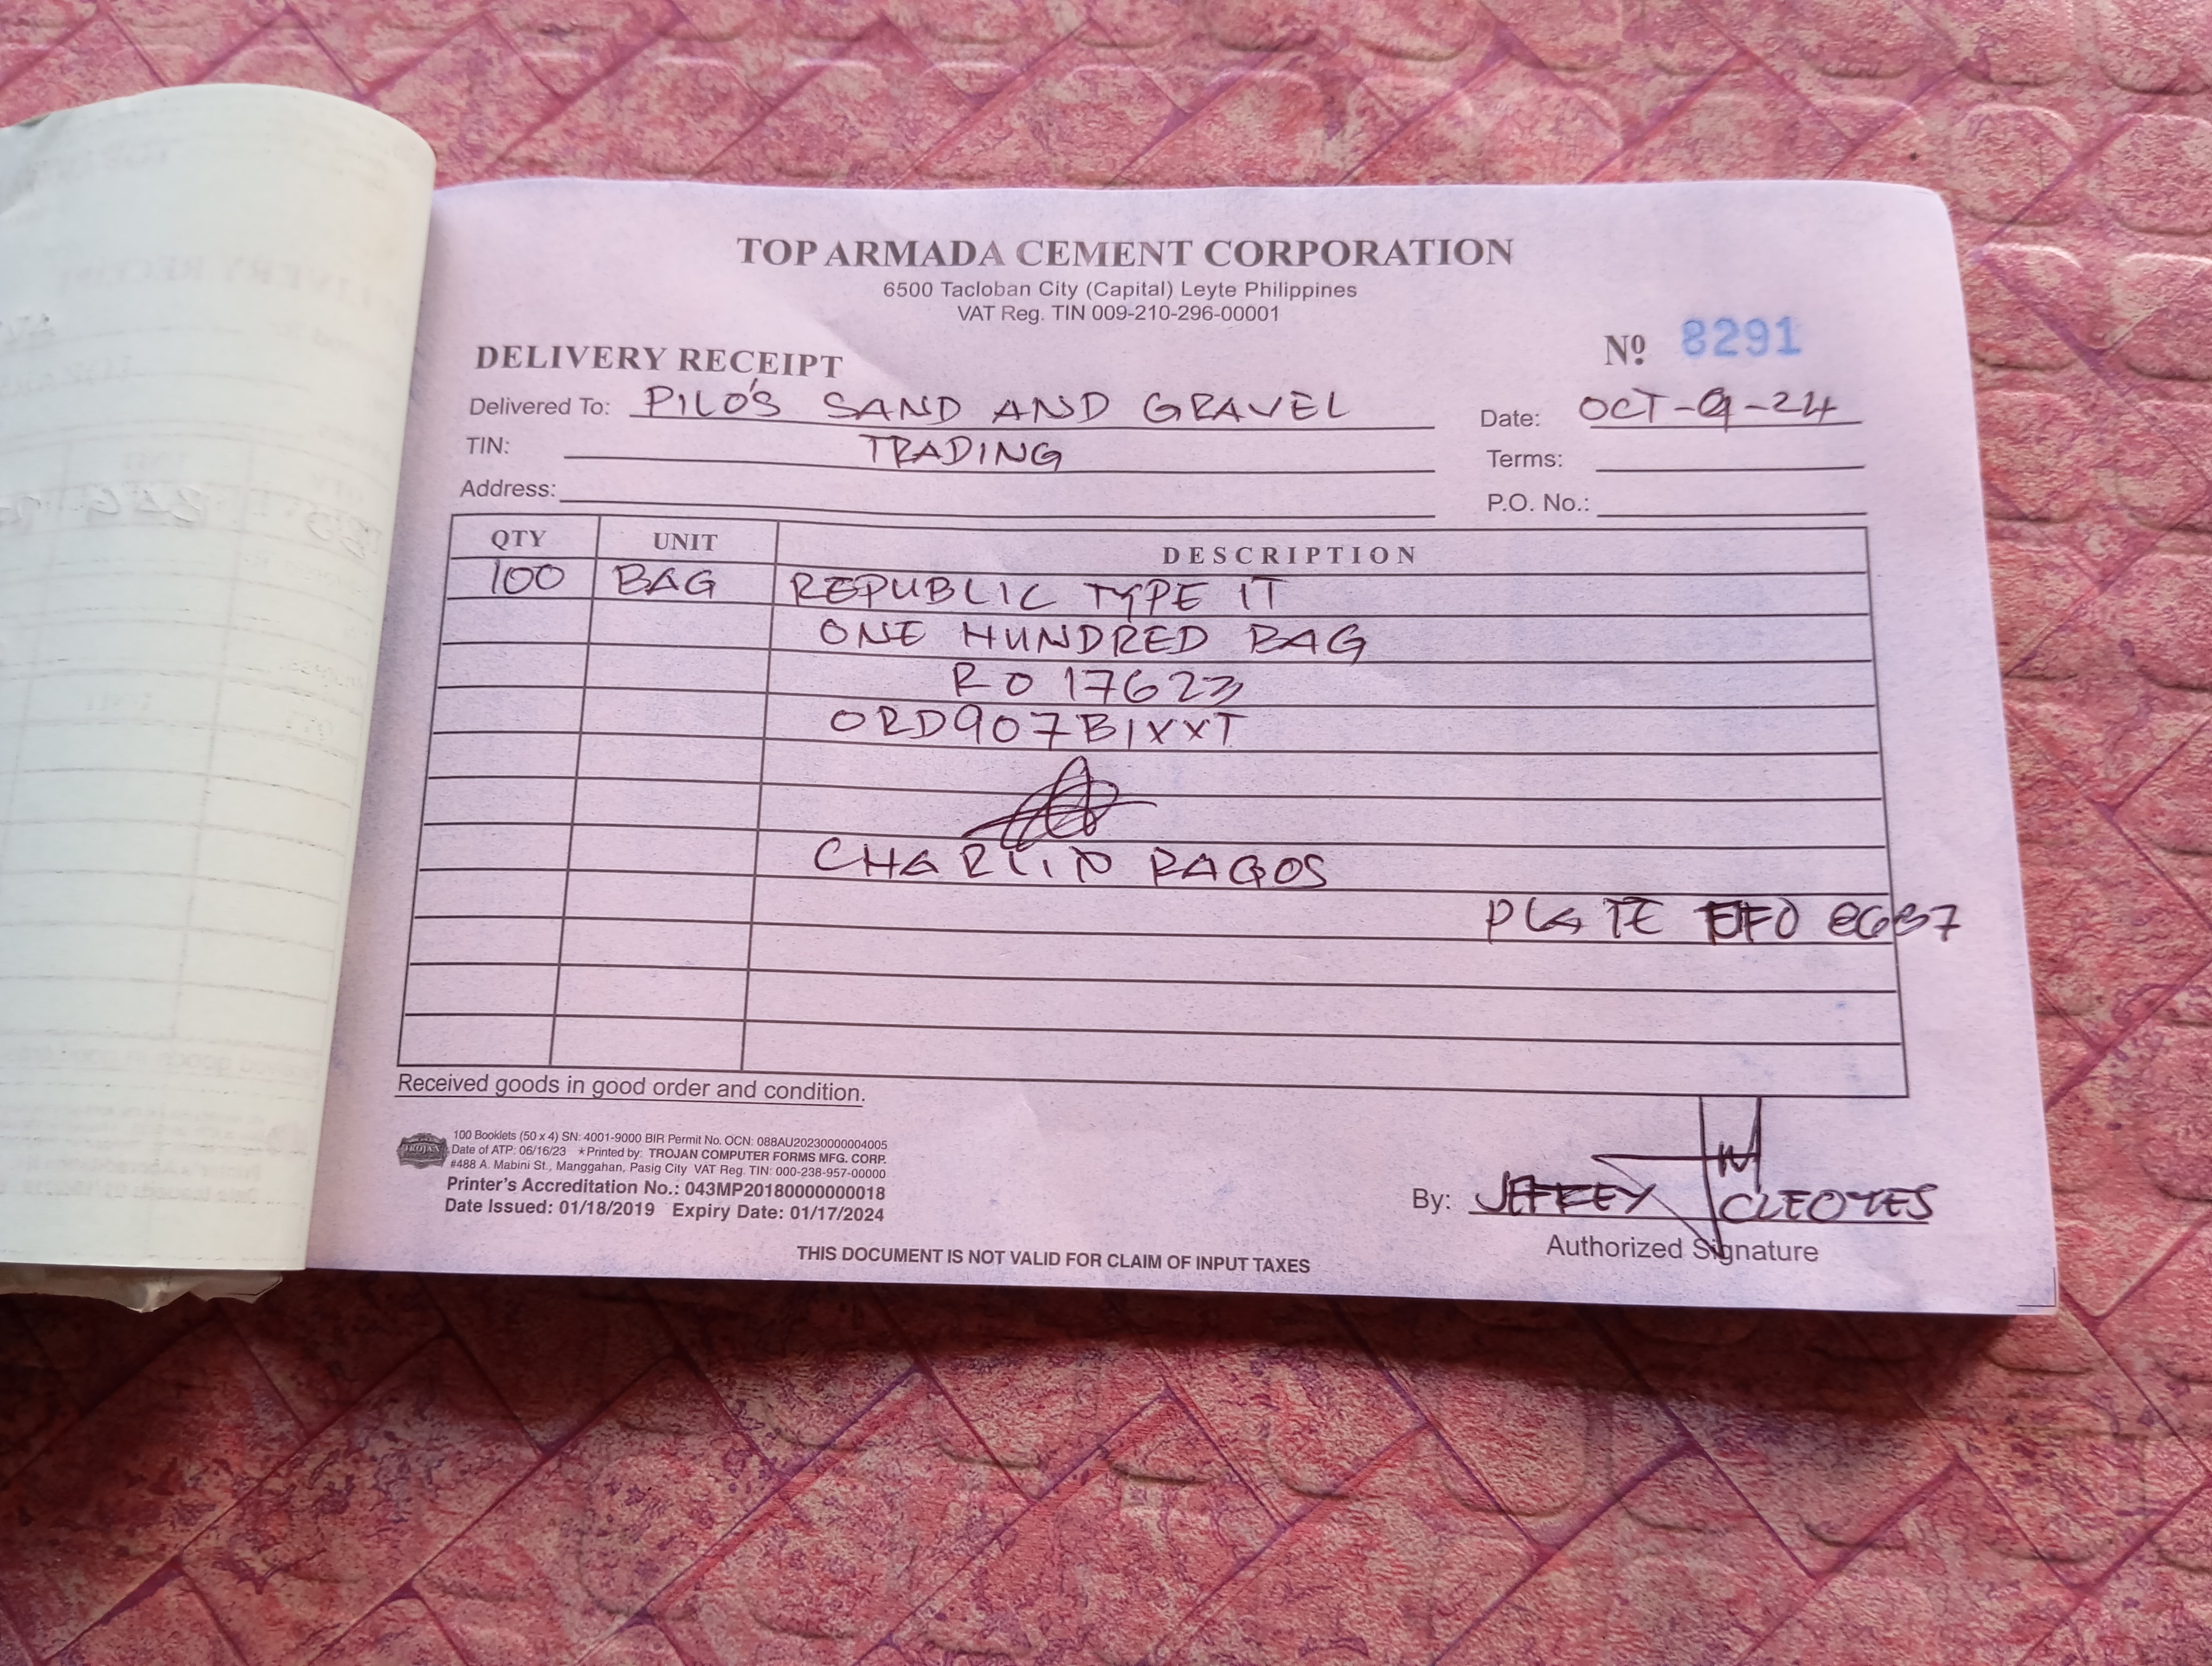 TOP ARMADA CEMENT CORPORATION
6500 Tacloban City (Capital) Leyte Philippines
VAT Reg. TIN 009-210-296-00001
DELIVERY RECEIPT
Nº 8291
Delivered To: PILO'S SAND AND GRAVEL
Date: OCT-9-24
TIN: TRADING
Terms:
Address:
P.O. No.:
QTY UNIT DESCRIPTION
100 BAG REPUBLIC TYPE IT
ONE HUNDRED BAG
RO 17623
ORD907B1XXT
CHARLIN RAGOS
PLATE
Received goods in good order and condition.
TROJAN
100 Booklets (50 x 4) SN: 4001-9000 BIR Permit No. OCN: 088AU20230000004005
Date of ATP: 06/16/23 ★Printed by: TROJAN COMPUTER FORMS MFG. CORP.
#488 A. Mabini St., Manggahan, Pasig City VAT Reg. TIN: 000-238-957-00000
Printer's Accreditation No.: 043MP20180000000018
Date Issued: 01/18/2019 Expiry Date: 01/17/2024
By: JEFFREY CLEOTES
Authorized Signature
THIS DOCUMENT IS NOT VALID FOR CLAIM OF INPUT TAXES